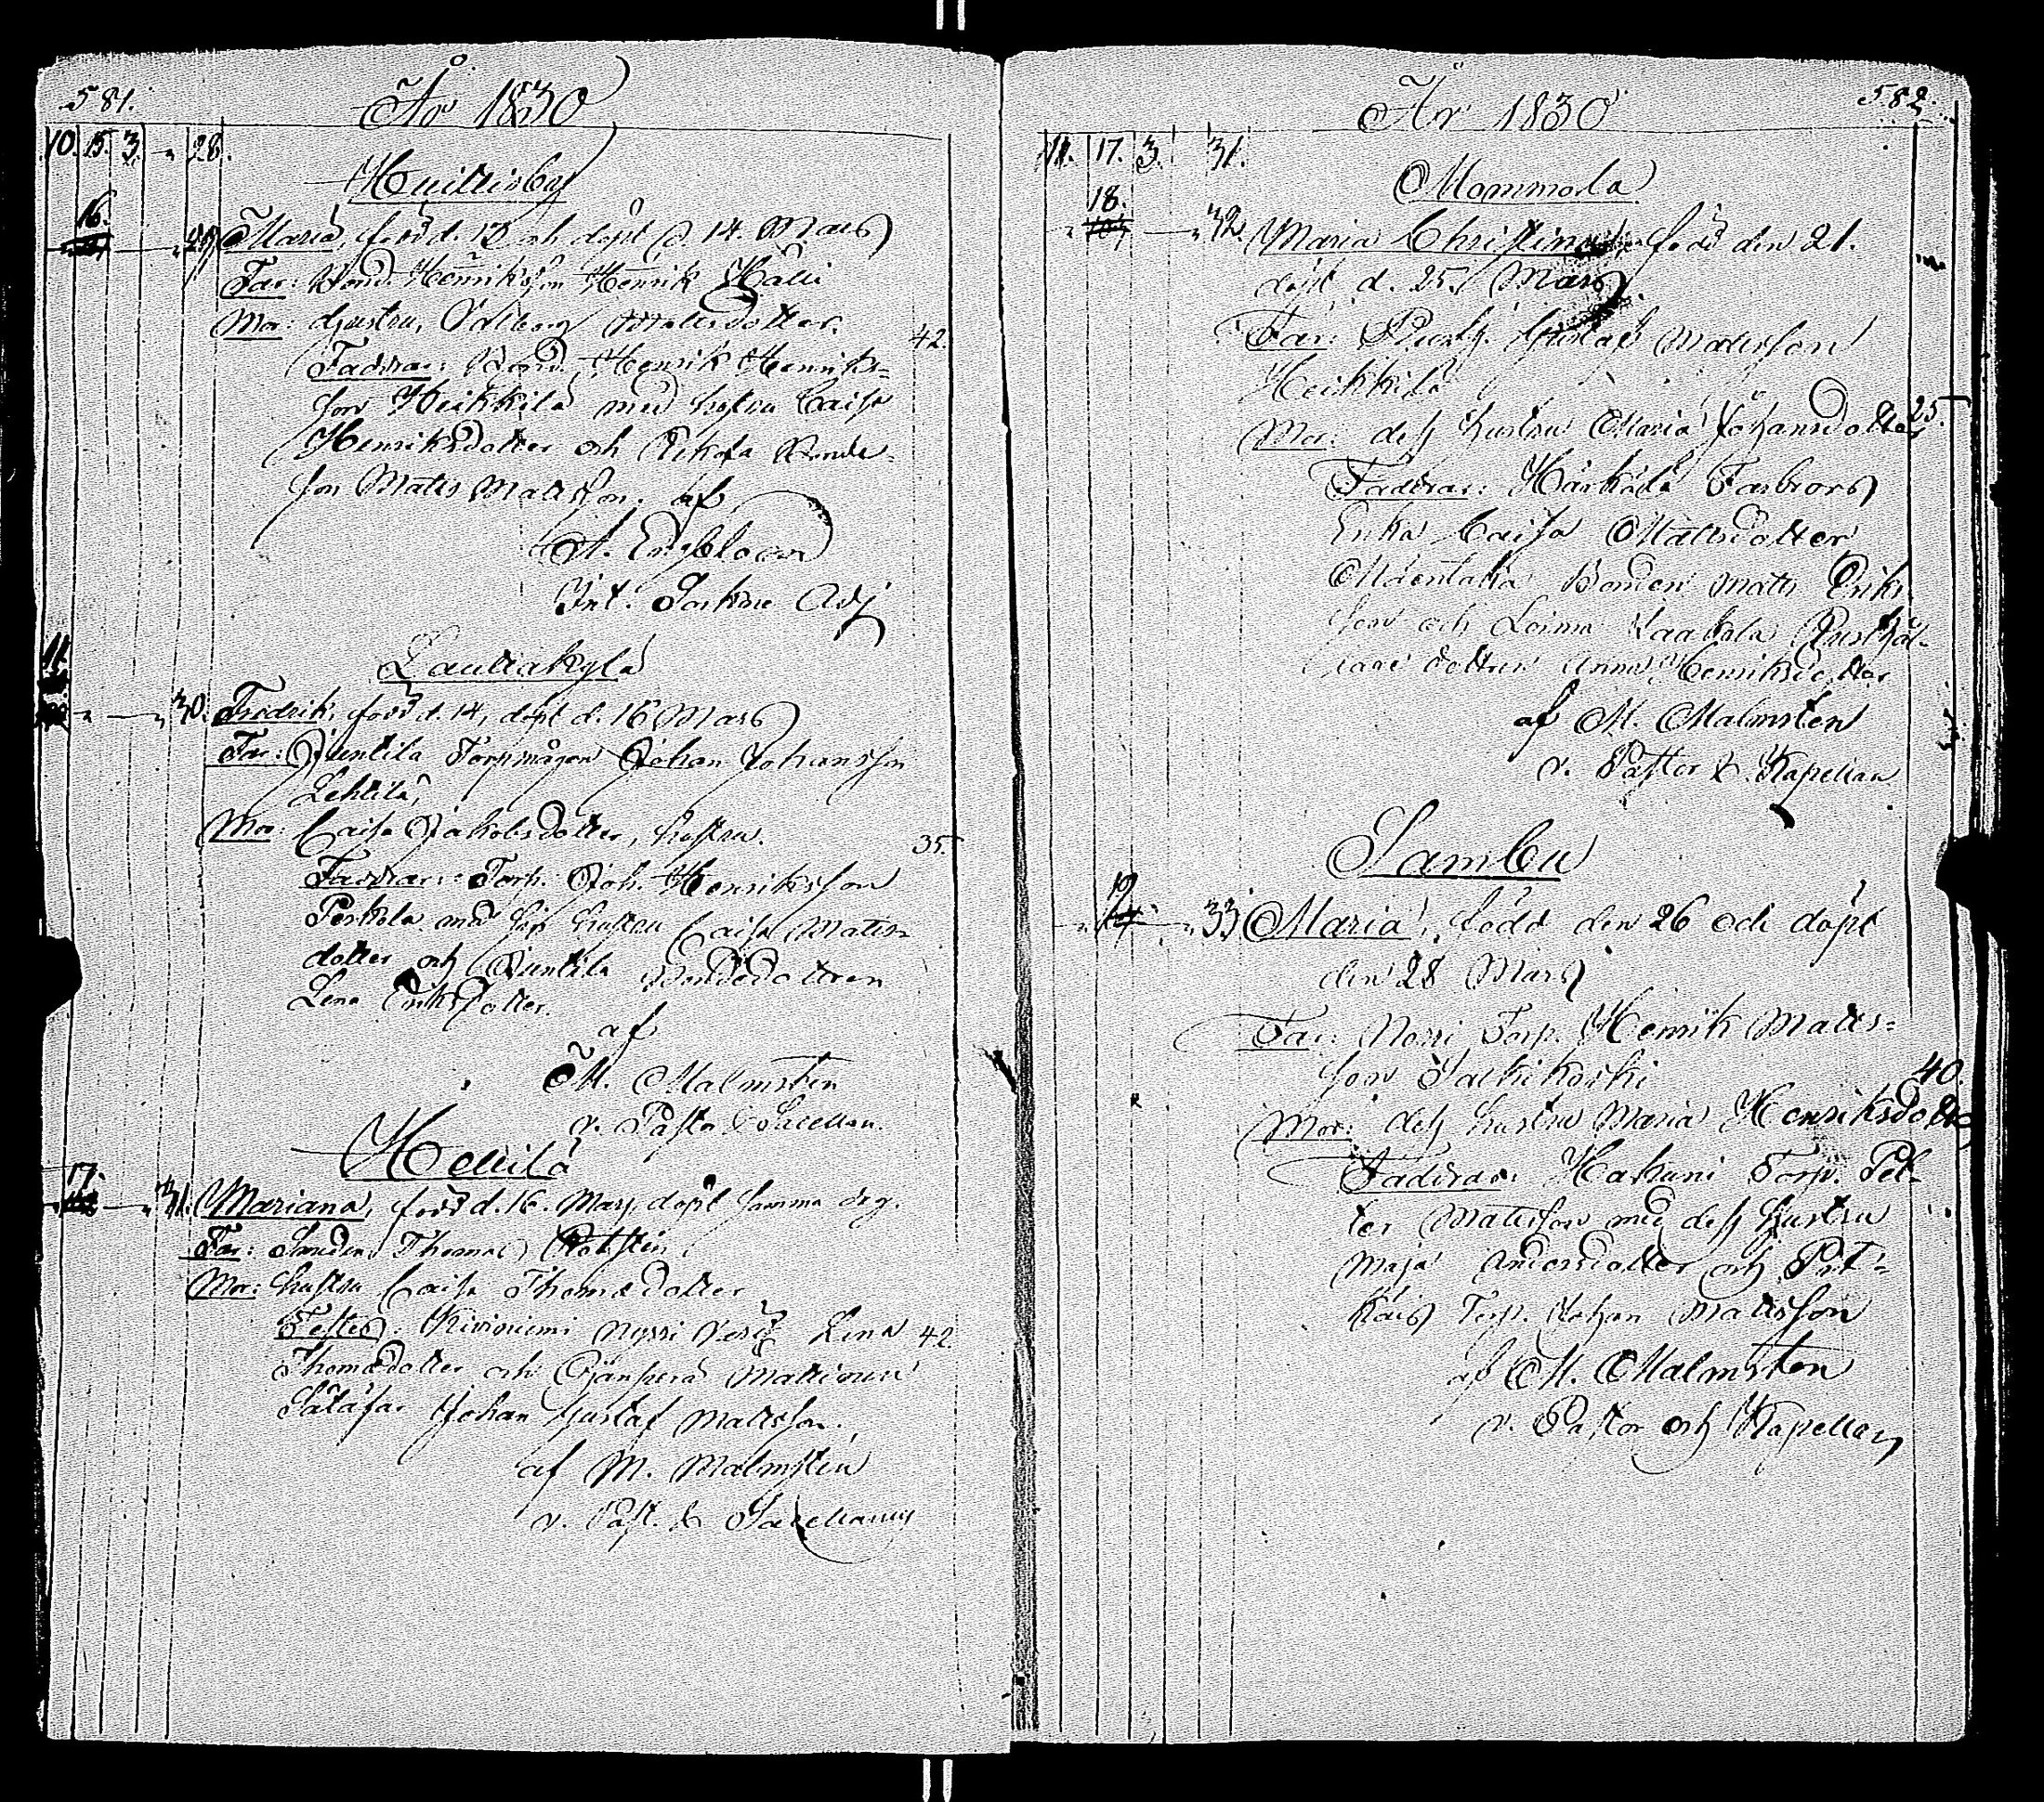 581.
År 1830
10. 15. 3. 28.
Huittisby
16.
29. Maria, född d. 13 och döpt d. 14. Mars
Far: Bond. Henriksson Henrik Hälli
Mor: hustru, Valborg Mattsdotter. 42.
Faddrar: Bond. Henrik Henriks-
son Heikkilä med hustru Caisa
Henriksdotter och Rekola Bonde-
son Matts Mattsson. af
A. Engblom
Int. Sockne Adj
11.
Lauttakylä
30. Fredrik, född d. 14, döpt d. 16 Mars
Far: Junttila Torpmågen Johan Johansson
Lehtilä,
Mor: Caisa Jakobsdotter, hustru. 35.
Faddrar: Torp. Joh. Henriksson
Perttola med sin hustru Caisa Matts-
dotter och Junttila Bondedottren
Lena Eriksdotter.
af
M. Malmsten
v. Pastor & Sacellan.
Hellilä
17.
31. Mariana, född d. 16. Mars, döpt samma dag.
Far: Smeden Thomas Rotsten,
Mor: hustru Caisa Thomædotter
Testes: Kiviniemi Lena 42.
Thomædotter och Mattivuori
Johan Gustaf Mattsson,
af M. Malmsten
v. Past. & Sacellanus
582.
År 1830
11. 17. 3. 31.
Mommola
18.
32. Maria Christina, född den 21.
döpt d. 25. Mars
Far: Gustaf Mattsson
Heikkilä
Mor: dess hustru Maria Johansdotter 25.
Faddrar: Härkälä Farbrors
Enka Caisa Mattsdotter
Mäentaka Bonden Matts Eriks-
son och Loima Laakola Rusthål-
lare dottren Anna Henriksdotter
af M. Malmsten
v. Pastor & Kapellan
Sambu
19.
33. Maria, född den 26 och döpt
den 28 Mars
Far: Norri Torp. Henrik Matts-
son 40.
Mor: dess hustru Maria Henriksdotter
Faddrar: Hakuni Torp. Pet-
ter Mattsson med dess hustru
Maja Andersdotter och Pit-
käis Torp. Johan Mattsson
af M. Malmsten
v. Pastor och Kapellan